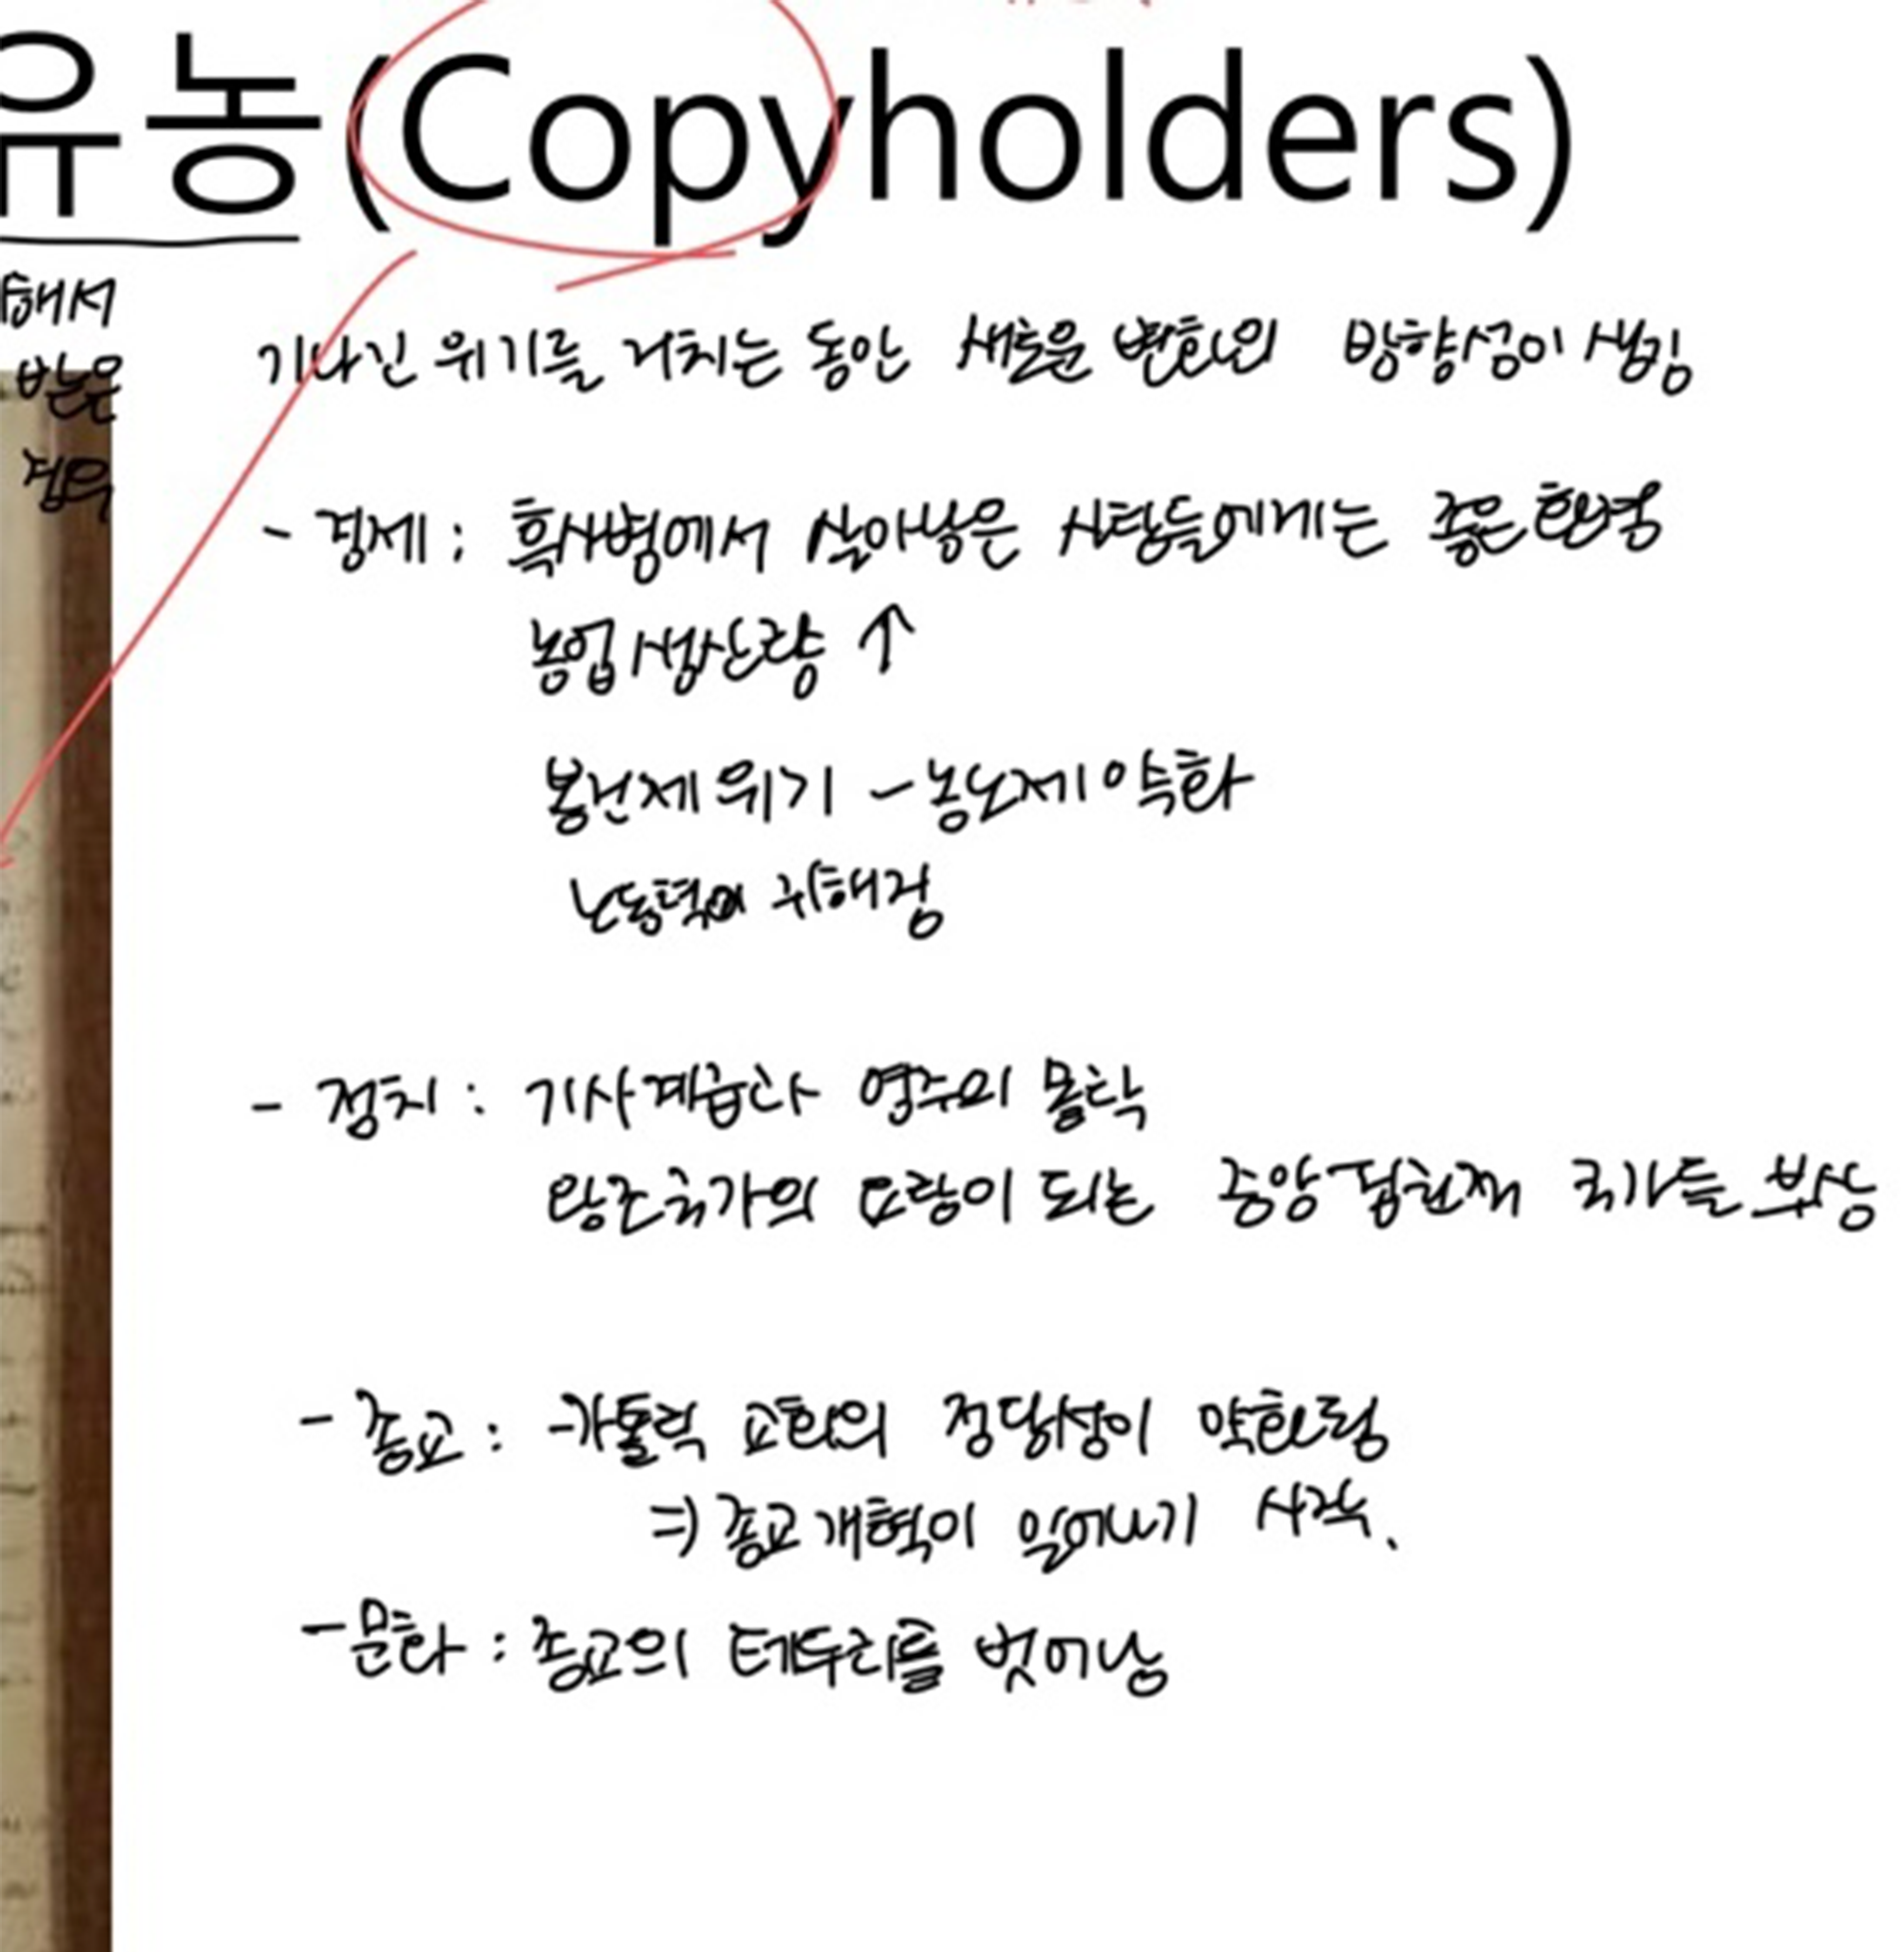 유농(Copyholders)
해서
받은
점유
기나긴 위기를 거치는 동안 새로운 변화의 방향성이 생김
- 경제 : 흑사병에서 살아남은 사람들에게는 좋은 환경
농업 생산량 ↑
봉건제 위기 - 농노제 약화
노동력이 귀해짐
- 정치 : 기사계급과 영주의 몰락
왕조국가의 요람이 되는 중앙집권적 국가들 부상
- 종교 : 카톨릭 교회의 정당성이 약화됨
⇒ 종교개혁이 일어나기 시작.
- 문화 : 종교의 테두리를 벗어남